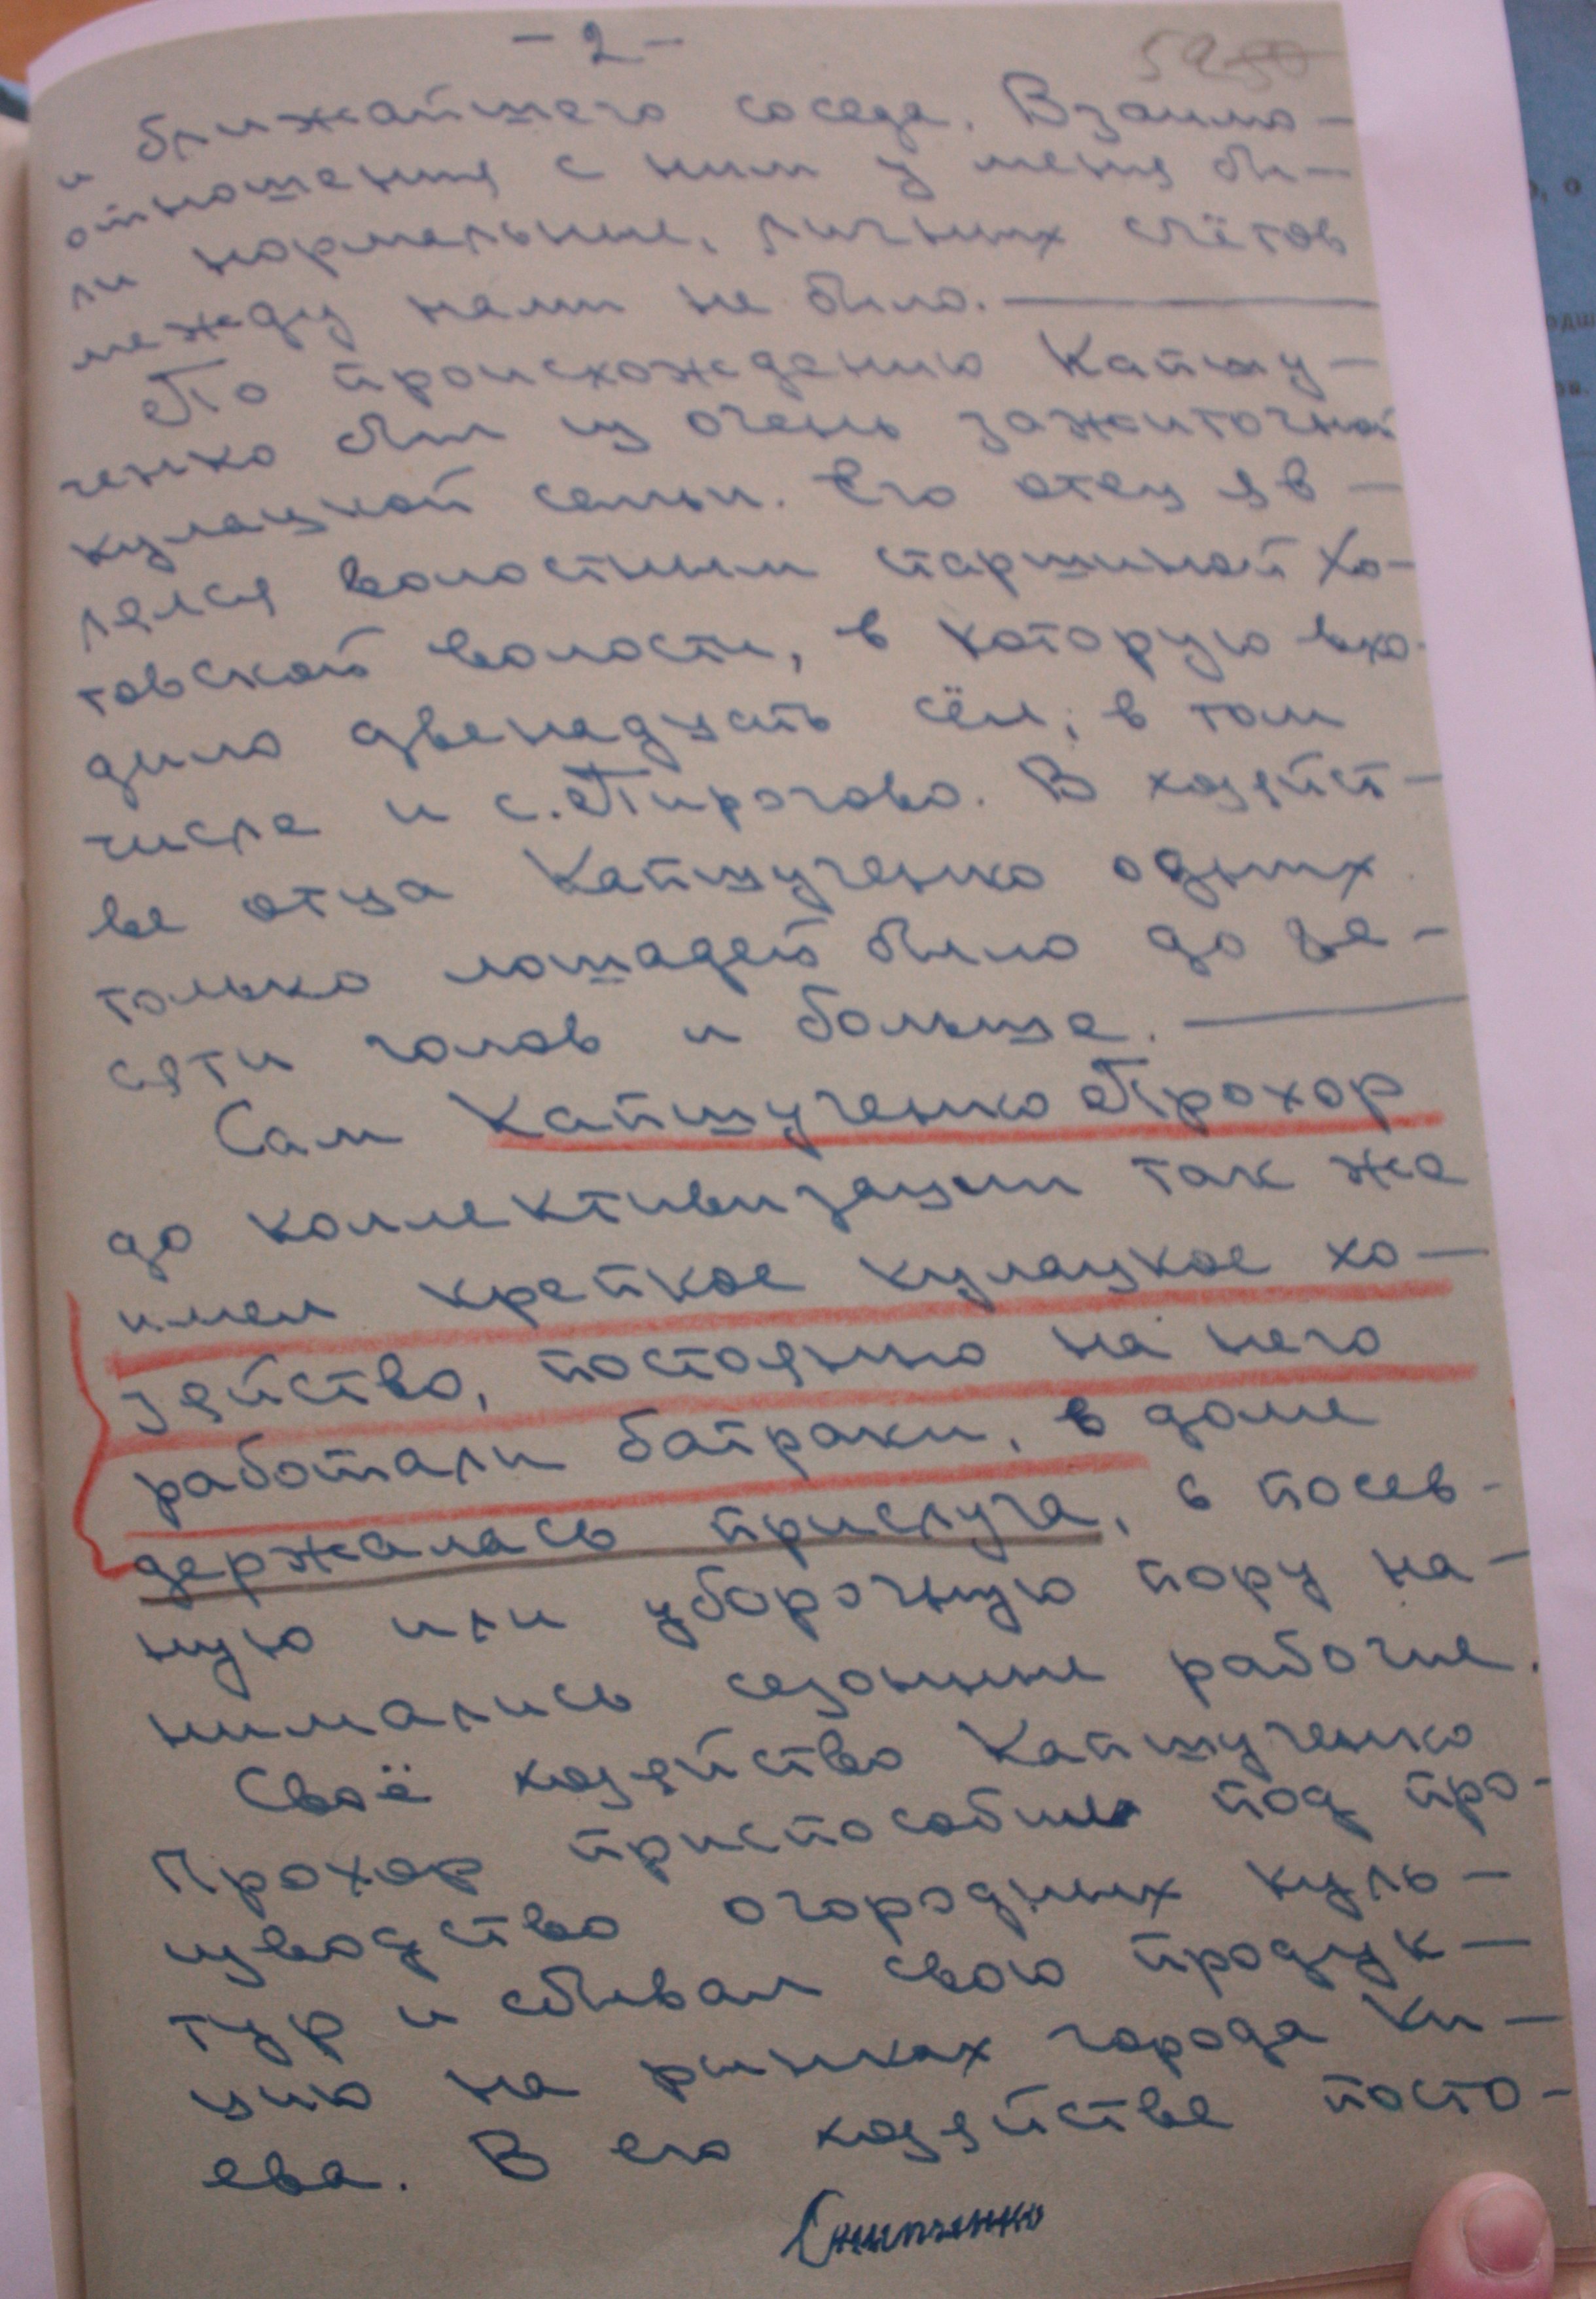 - 2 -
и ближайшего соседа. Взаимо-
отношения с ним у меня бы-
ли нормальные, личных счётов
между нами не было.
По происхождению Капшу-
ченко был из очень зажиточной
кулацкой семьи. Его отец яв-
лялся волостным старшиной Хо-
товской волости, в которую вхо-
дило двенадцать сёл, в том
числе и с. Пирогово. В хозяйст-
ве отца Капшученко одних
только лошадей было до де-
сяти голов и больше.
Сам Капшученко Прохор
до коллективизации так же
имел крепкое кулацкое хо-
зяйство, постоянно на него
работали батраки, в доме
держалась прислуга, в посев-
ную или уборочную пору на-
нимались сезонные рабочие.
Своё хозяйство Капшученко
Прохор приспособил под про-
изводство огородных куль-
тур и сбывал свою продук-
цию на рынках города Ки-
ева. В его хозяйстве посто-